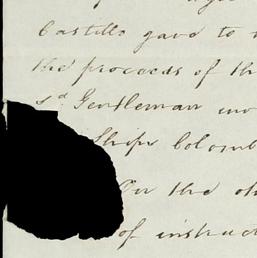 Castillo gave to
the proceeds of th
sd. Gentleman
Ships Colomb
On the
of instruct